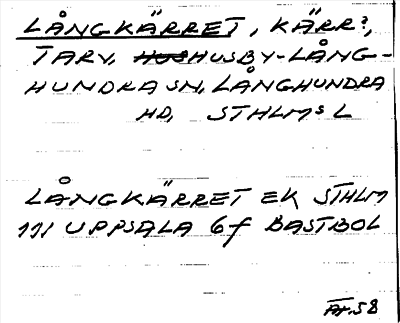 LÅNGKÄRRET, KÄRR?,
TARV, HUSBY-LÅNG-
HUNDRA SN, LÅNGHUNDRA
HD, STHLMS L
LÅNGKÄRRET EK STHLM
111 UPPSALA 6f BASTBOL
ÄF.58